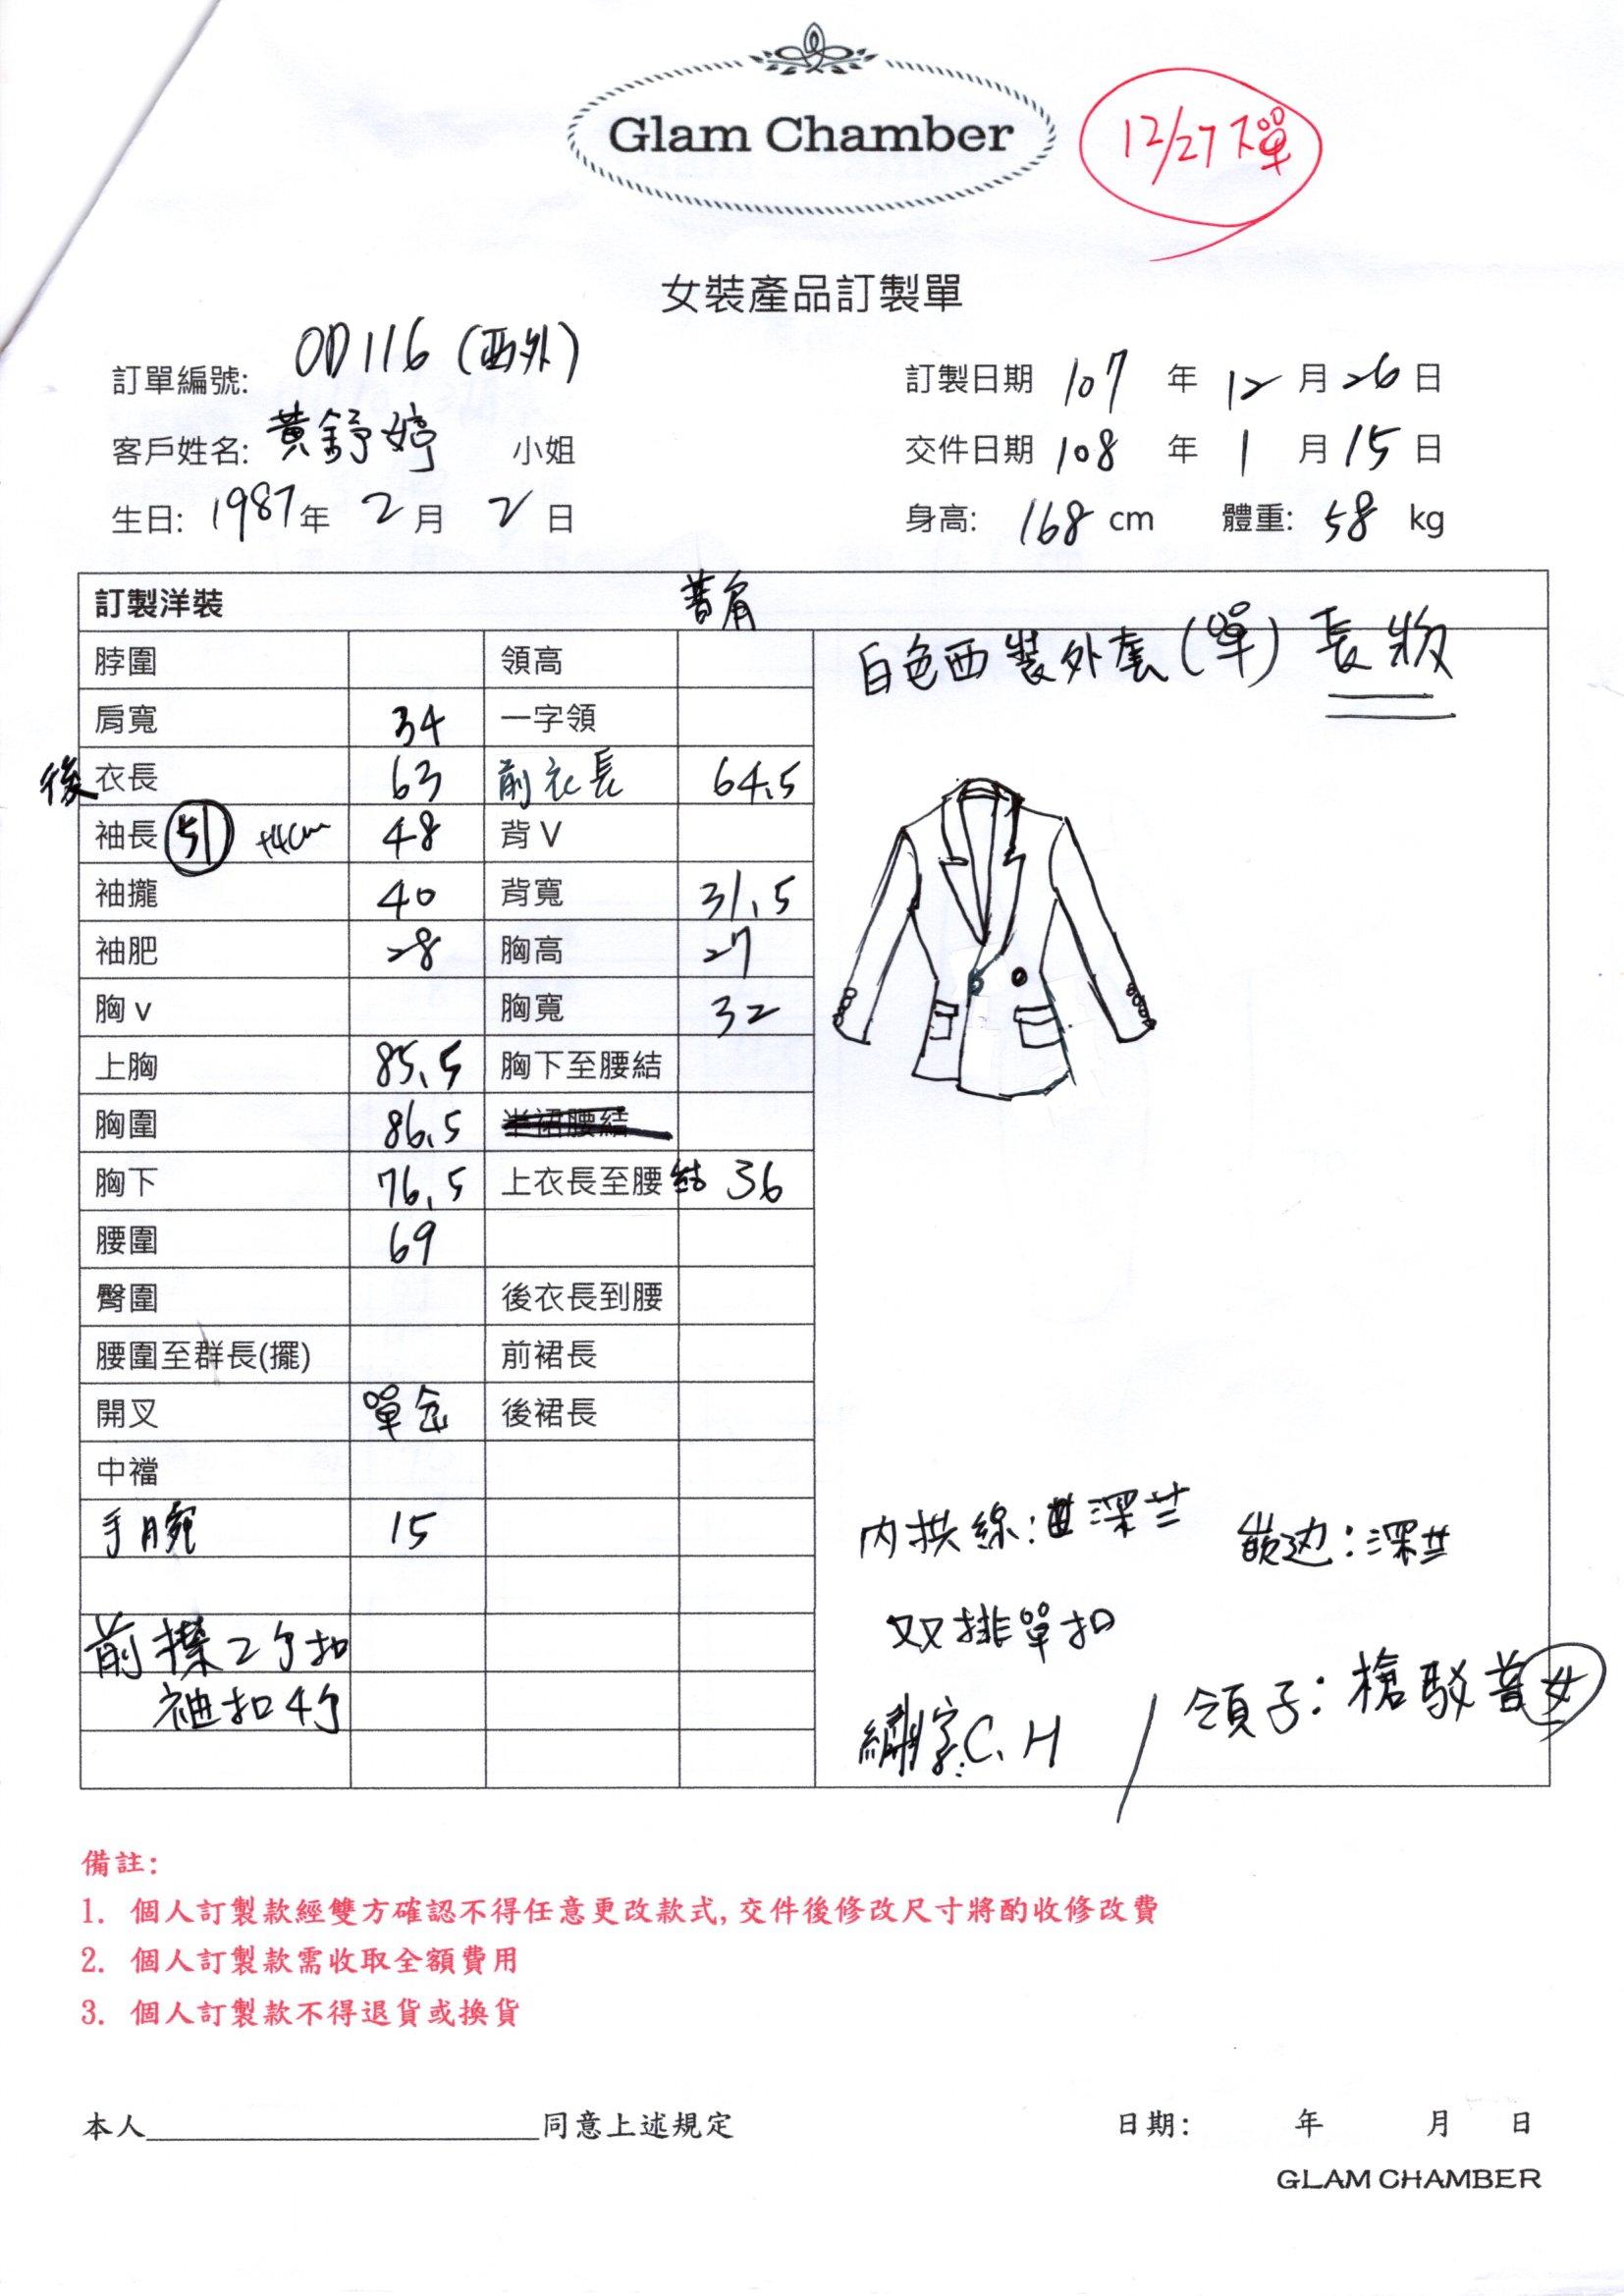 Glam Chamber
12/27 下單
女裝產品訂製單
訂單編號: OD116 (西外)
訂製日期 107 年 12 月 26 日
客戶姓名: 黃舒婷 小姐
交件日期 108 年 1 月 15 日
生日: 1987年 2 月 2 日
身高: 168 cm 體重: 58 kg
訂製洋裝 普肩
白色西裝外套(單) 長版
脖圍 領高
肩寬 34 一字領
後 衣長 63 前衣長 64.5
袖長 51 +4cm 48 背 V
袖攏 40 背寬 31.5
袖肥 28 胸高 27
胸 v 胸寬 32
上胸 85.5 胸下至腰結
胸圍 86.5 半裙腰結
胸下 76.5 上衣長至腰結 36
腰圍 69
臀圍 後衣長到腰
腰圍至群長(擺) 前裙長
開叉 單 後裙長
中襠
手腕 15
前襟2个扣
袖扣4个
內拱線: 深芏 嵌边: 深芏
双排單扣
繡字: C. H / 領子: 槍駁普女
備註:
1. 個人訂製款經雙方確認不得任意更改款式, 交件後修改尺寸將酌收修改費
2. 個人訂製款需收取全額費用
3. 個人訂製款不得退貨或換貨
本人 同意上述規定
日期: 年 月 日
GLAM CHAMBER